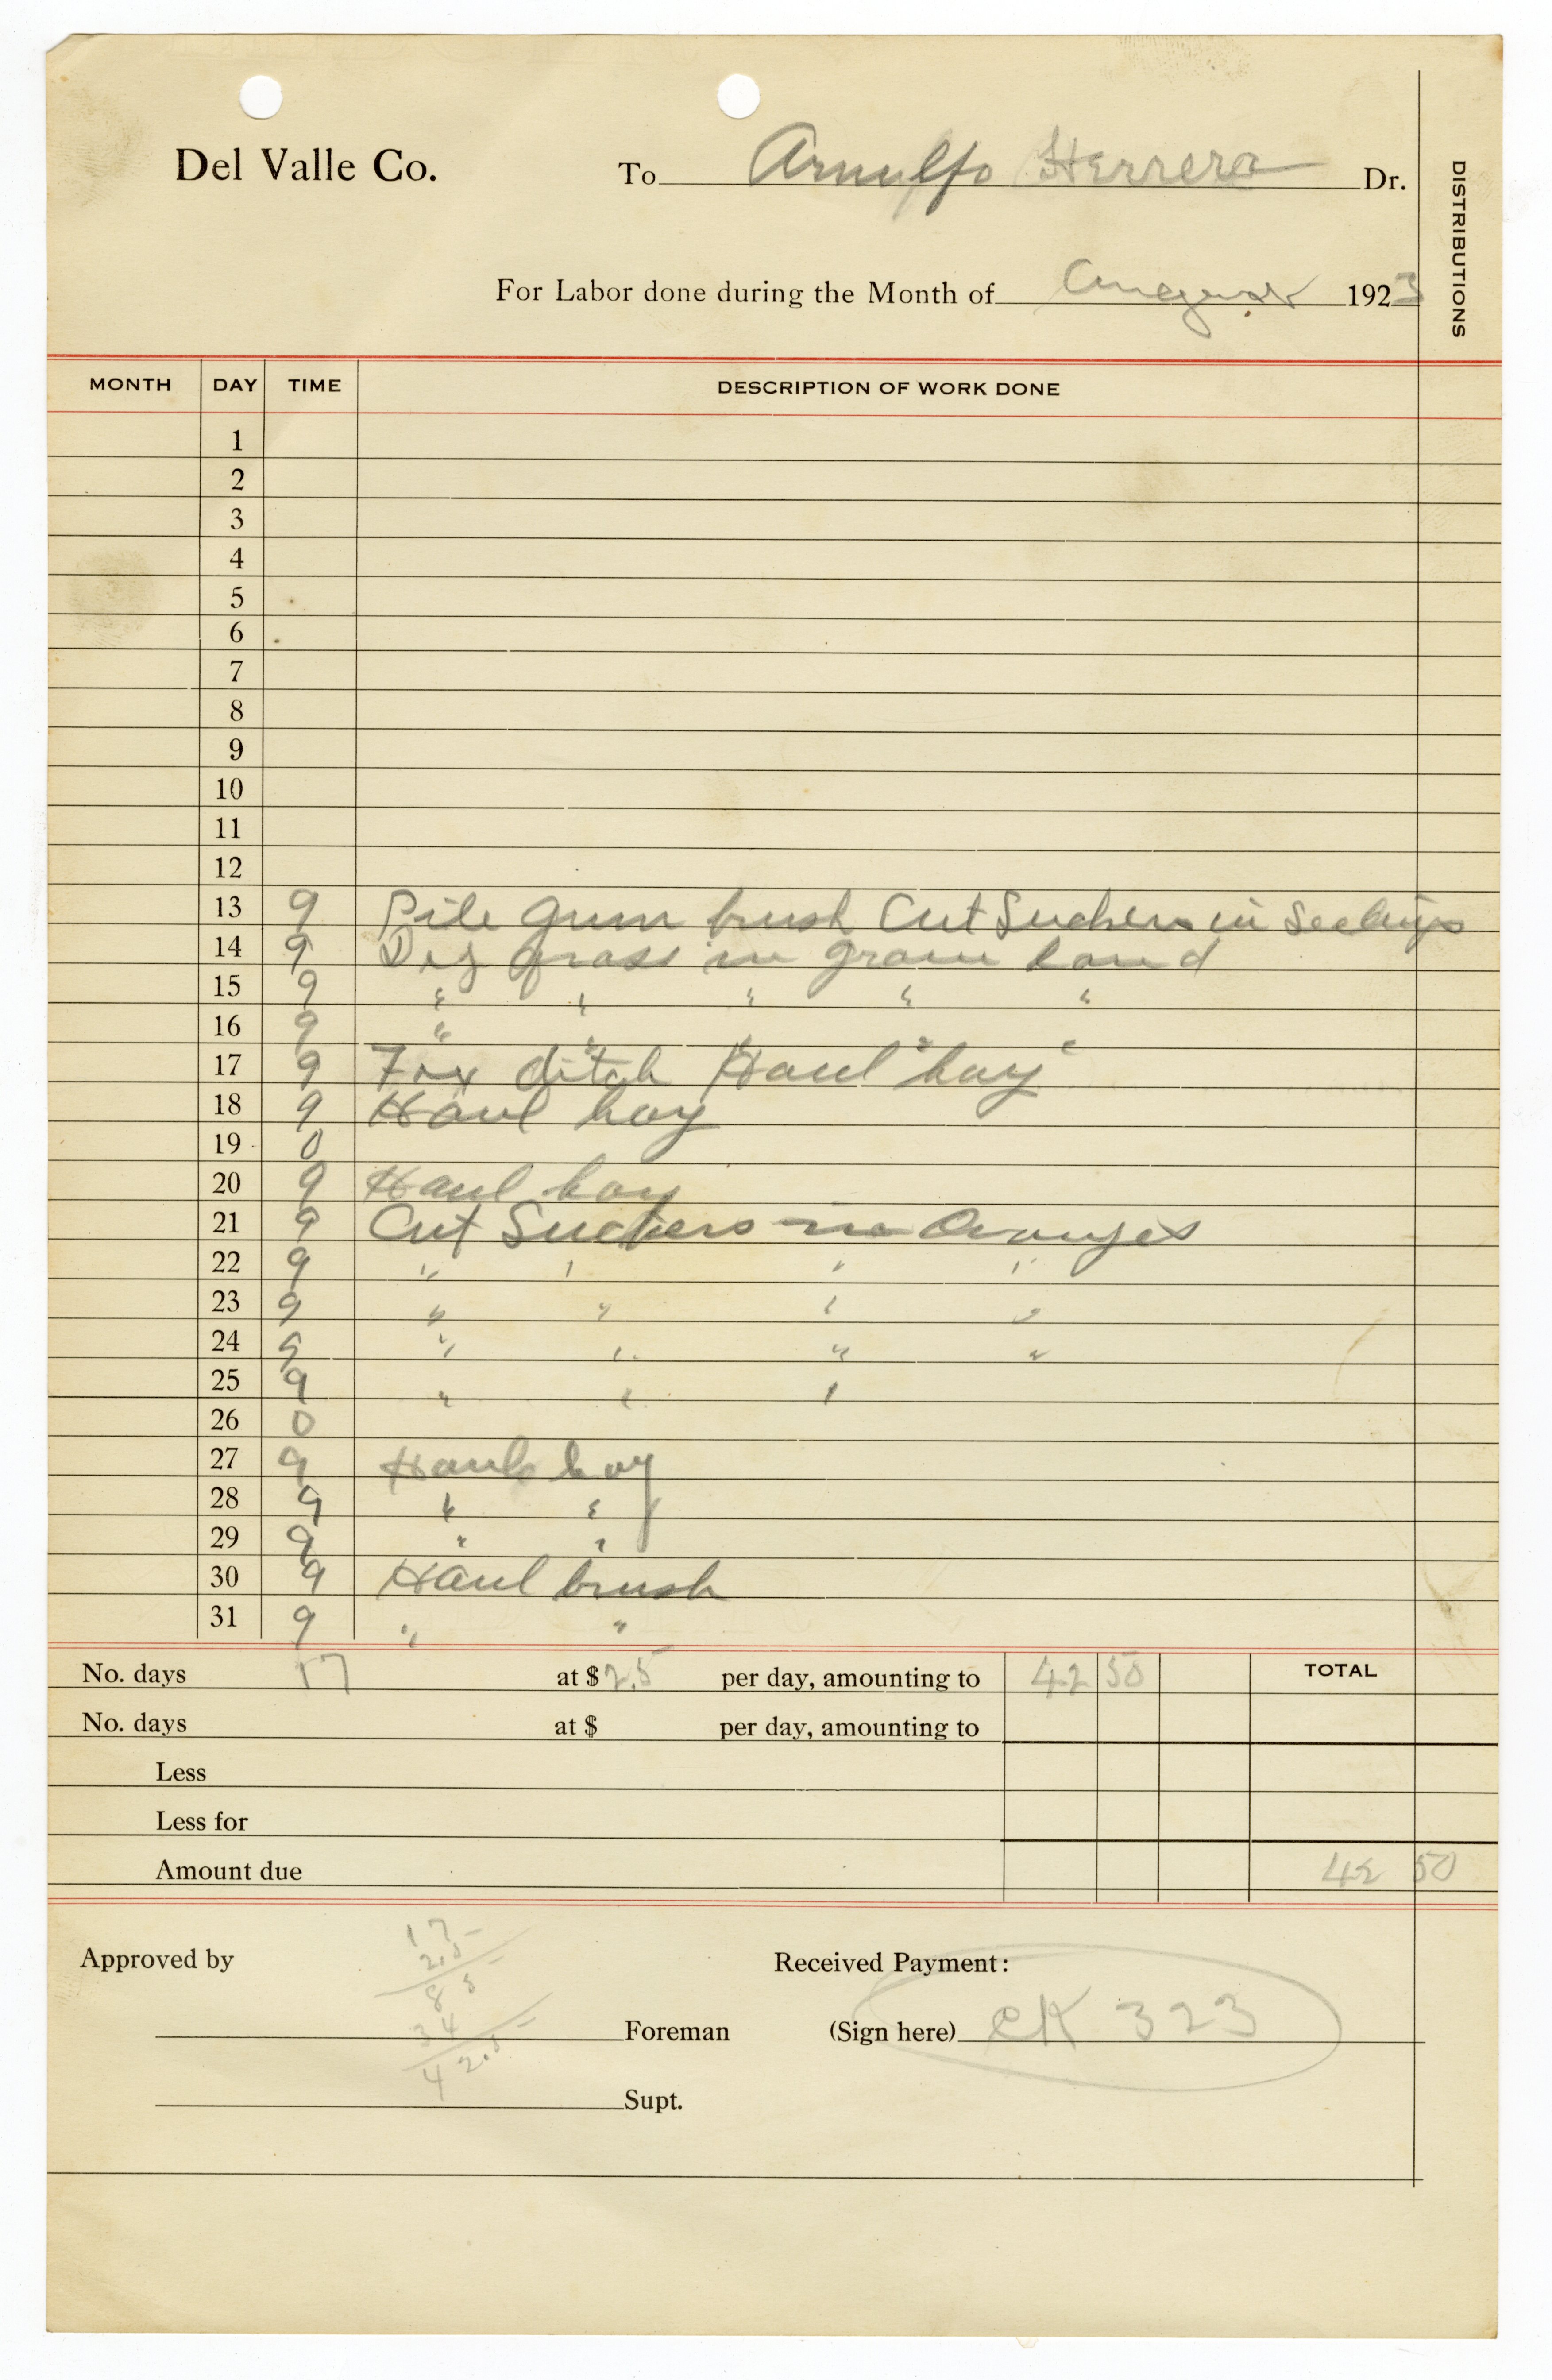 Del Valle Co. To Arnulfo Herrera Dr.
DISTRIBUTIONS
For Labor done during the Month of August 1923
MONTH DAY TIME DESCRIPTION OF WORK DONE
1
2
3
4
5
6
7
8
9
10
11
12
13 9 Pile gum brush Cut Suckers in Seelings
14 9 Dig grass in grain land
15 9 " " " " "
16 9 " " " " "
17 9 Fix ditch Haul hay
18 9 Haul hay
19 0
20 9 Haul hay
21 9 Cut Suckers in Oranges
22 9 " " " "
23 9 " " " "
24 9 " " " "
25 9 " " "
26 0
27 9 Haul hay
28 9 " "
29 9 " "
30 9 Haul brush
31 9 " "
No. days 17 at $ 2.5 per day, amounting to 42 50 TOTAL
No. days at $ per day, amounting to
Less
Less for
Amount due 42 50
17
Approved by 2.5 Received Payment:
85
34 Foreman (Sign here) CK 323
42.5
Supt.